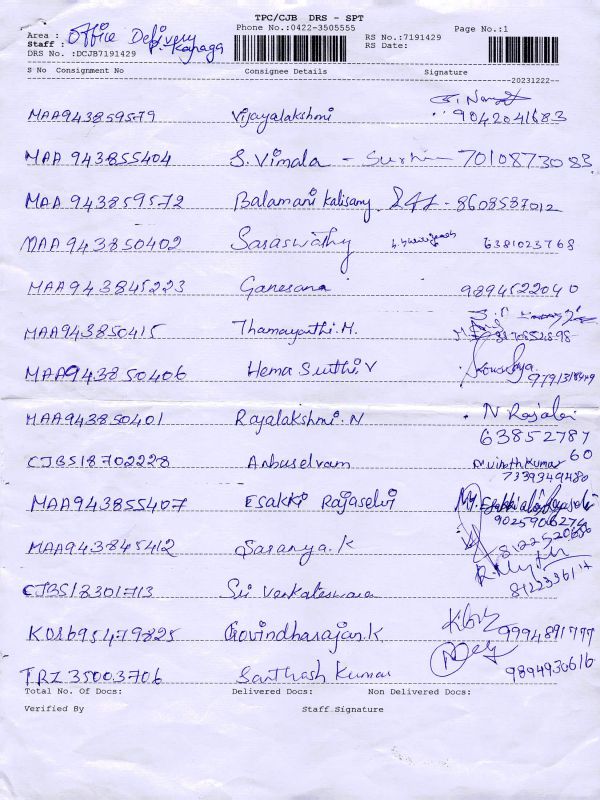 TPC/CJB DRS - SPT
Phone No.:0422-3505555 Page No.:1
Area : Office Delivery RS No.:7191429
Staff : P. Kanaga RS Date:
DRS No. :DCJB7191429
S No Consignment No Consignee Details Signature
20231222
MAA943859579 Vijayalakshmi 9042041683
MAA943855404 S. Vimala - 7010873083
MAA943859572 Balamani Kalisamy 8608587012
MAA943850402 Saraswathy 6381023768
MAA943845223 Ganesana 9894522040
MAA943850415 Thamayanthi.M.
MAA943850406 Hema Suthi V
MAA943850401 Rajalakshmi.N N Rajalai
63852787
60
CJB518702228 Anbuselvam Vinothkumar
7339349480
MAA943855407 Esakki Rajaselvi
9025906274
MAA943845412 Saranya.K
CJB518301713 Sri Venkateswara
K01695479825 Govindharajan.K 9994891777
TRZ35003706 Santhosh Kumar 9894930616
Total No. Of Docs: Delivered Docs: Non Delivered Docs:
Verified By Staff Signature